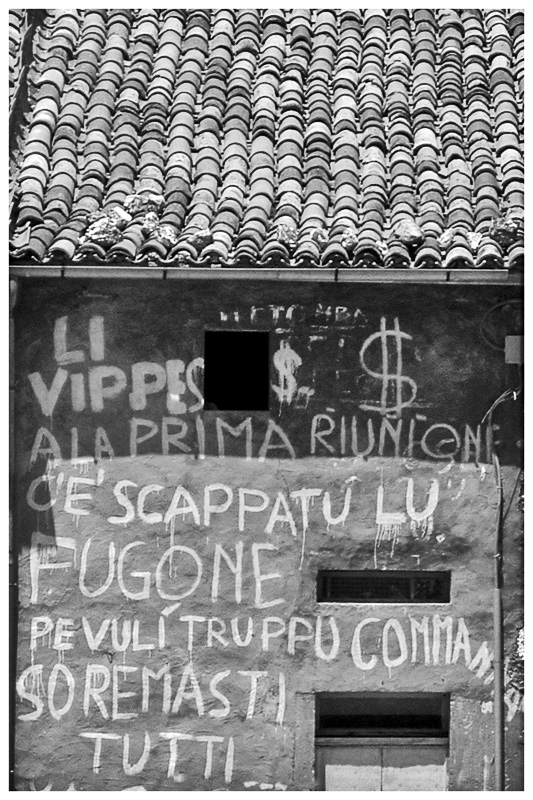 LI
VIPPES $ $
A LA PRIMA RIUNIONE
C'E' SCAPPATU LU
FUGONE
PE VULÍ TRUPPU COMMAN
SO REMASTI
TUTTI